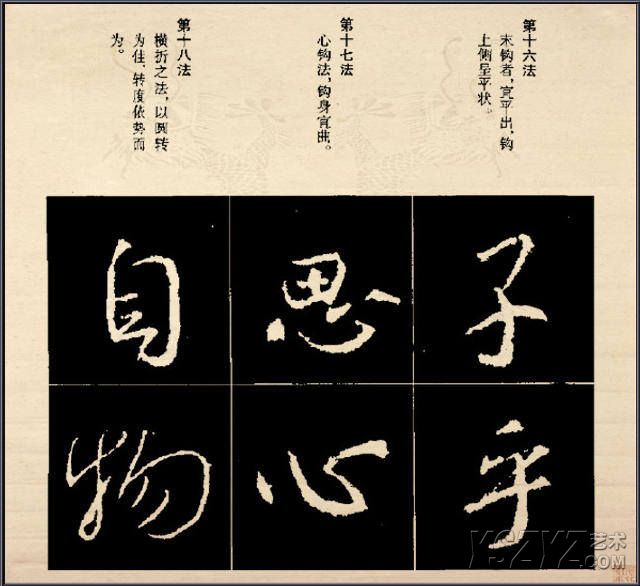 第十六法
末钩者,宜平出,钩
上侧呈平状。
第十七法
心钩法,钩身宜曲。
第十八法
横折之法,以圆转
为佳,转度依势而
为。
子
乎
思
心
自
物
YSZYZ艺术
.com